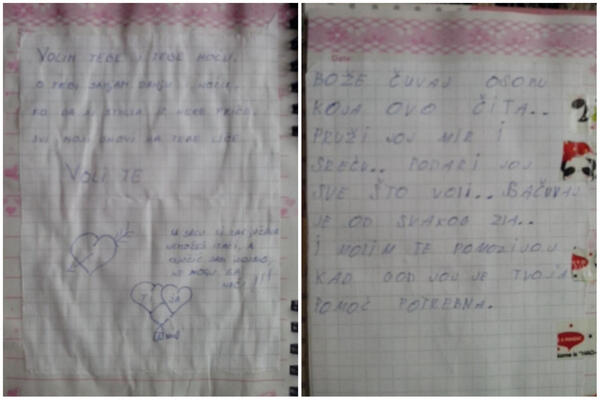 VOLIM TEBE I TEBE HOĆU.
O TEBI SANJAM DANJU I NOĆU.
KO DA SI STIGLA IZ NEKE PRIČE.
SVI MOJI SNOVI NA TEBE LIČE.
VOLI TE
U SRCU SI
NE MOGU DA
TI JA
Date
BOŽE ČUVAJ OSOBU
KOJA OVO ČITA..
PRUŽI JOJ MIR I
SREĆU.. PODARI JOJ
SVE ŠTO VOLI.. SAČUVAJ
JE OD SVAKOG ZLA..
I MOLIM TE POMOZI JOJ
KAD GOD JOJ JE TVOJA
POMOĆ POTREBNA.